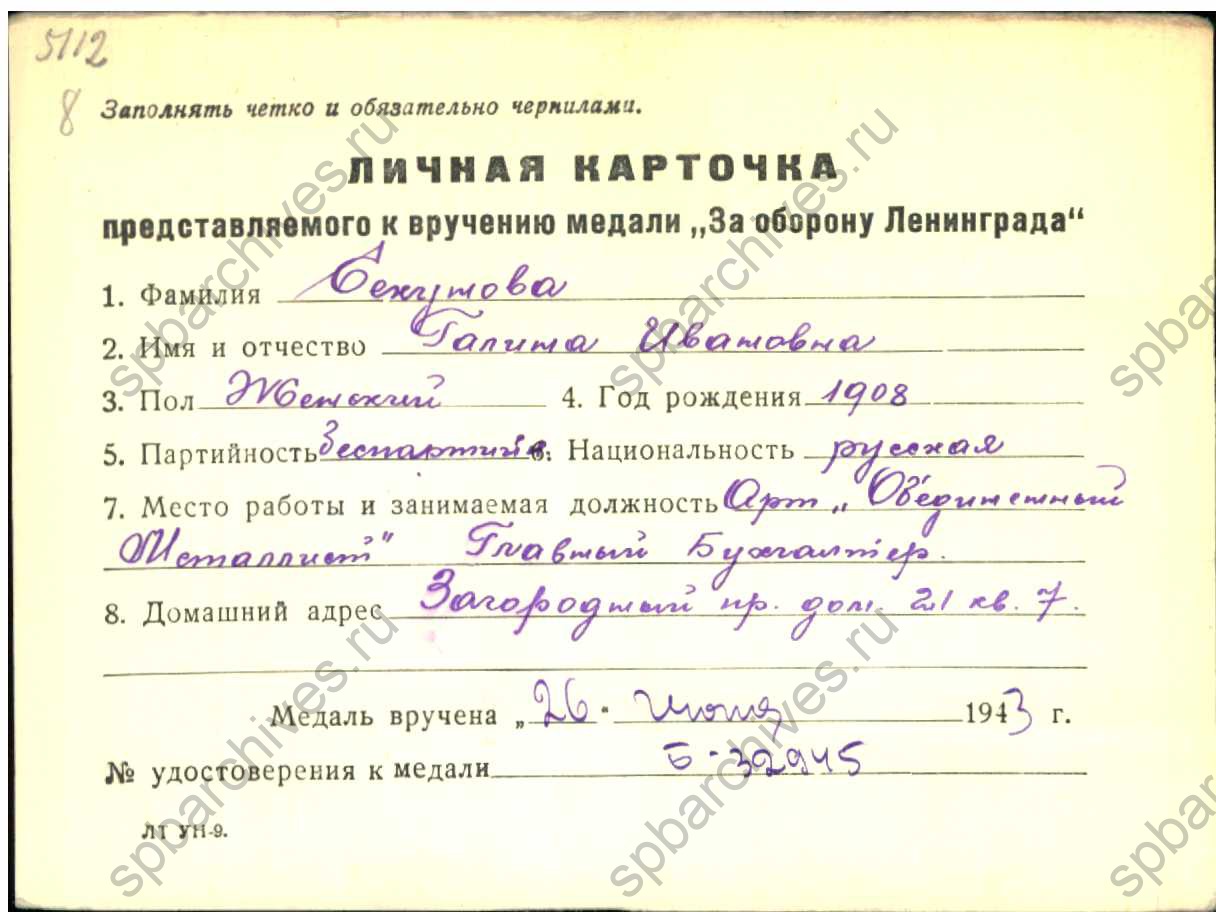 5112
8 Заполнять четко и обязательно чернилами.
ЛИЧНАЯ КАРТОЧКА
представляемого к вручению медали „За оборону Ленинграда“
1. Фамилия Секутова
2. Имя и отчество Галина Ивановна
3. Пол Женский 4. Год рождения 1908
5. Партийность беспартий 6. Национальность русская
7. Место работы и занимаемая должность Арт „Обединенный
Металлист" Главный Бухгалтер.
8. Домашний адрес Загородный пр. дом. 21 кв. 7.
Медаль вручена „26. 1943 г.
№ удостоверения к медали Б-32945
ЛТ УН-9.
spbarchives.ru
spbarchives.ru
spbar
spbarchives.ru
spbarchives.ru
spbar